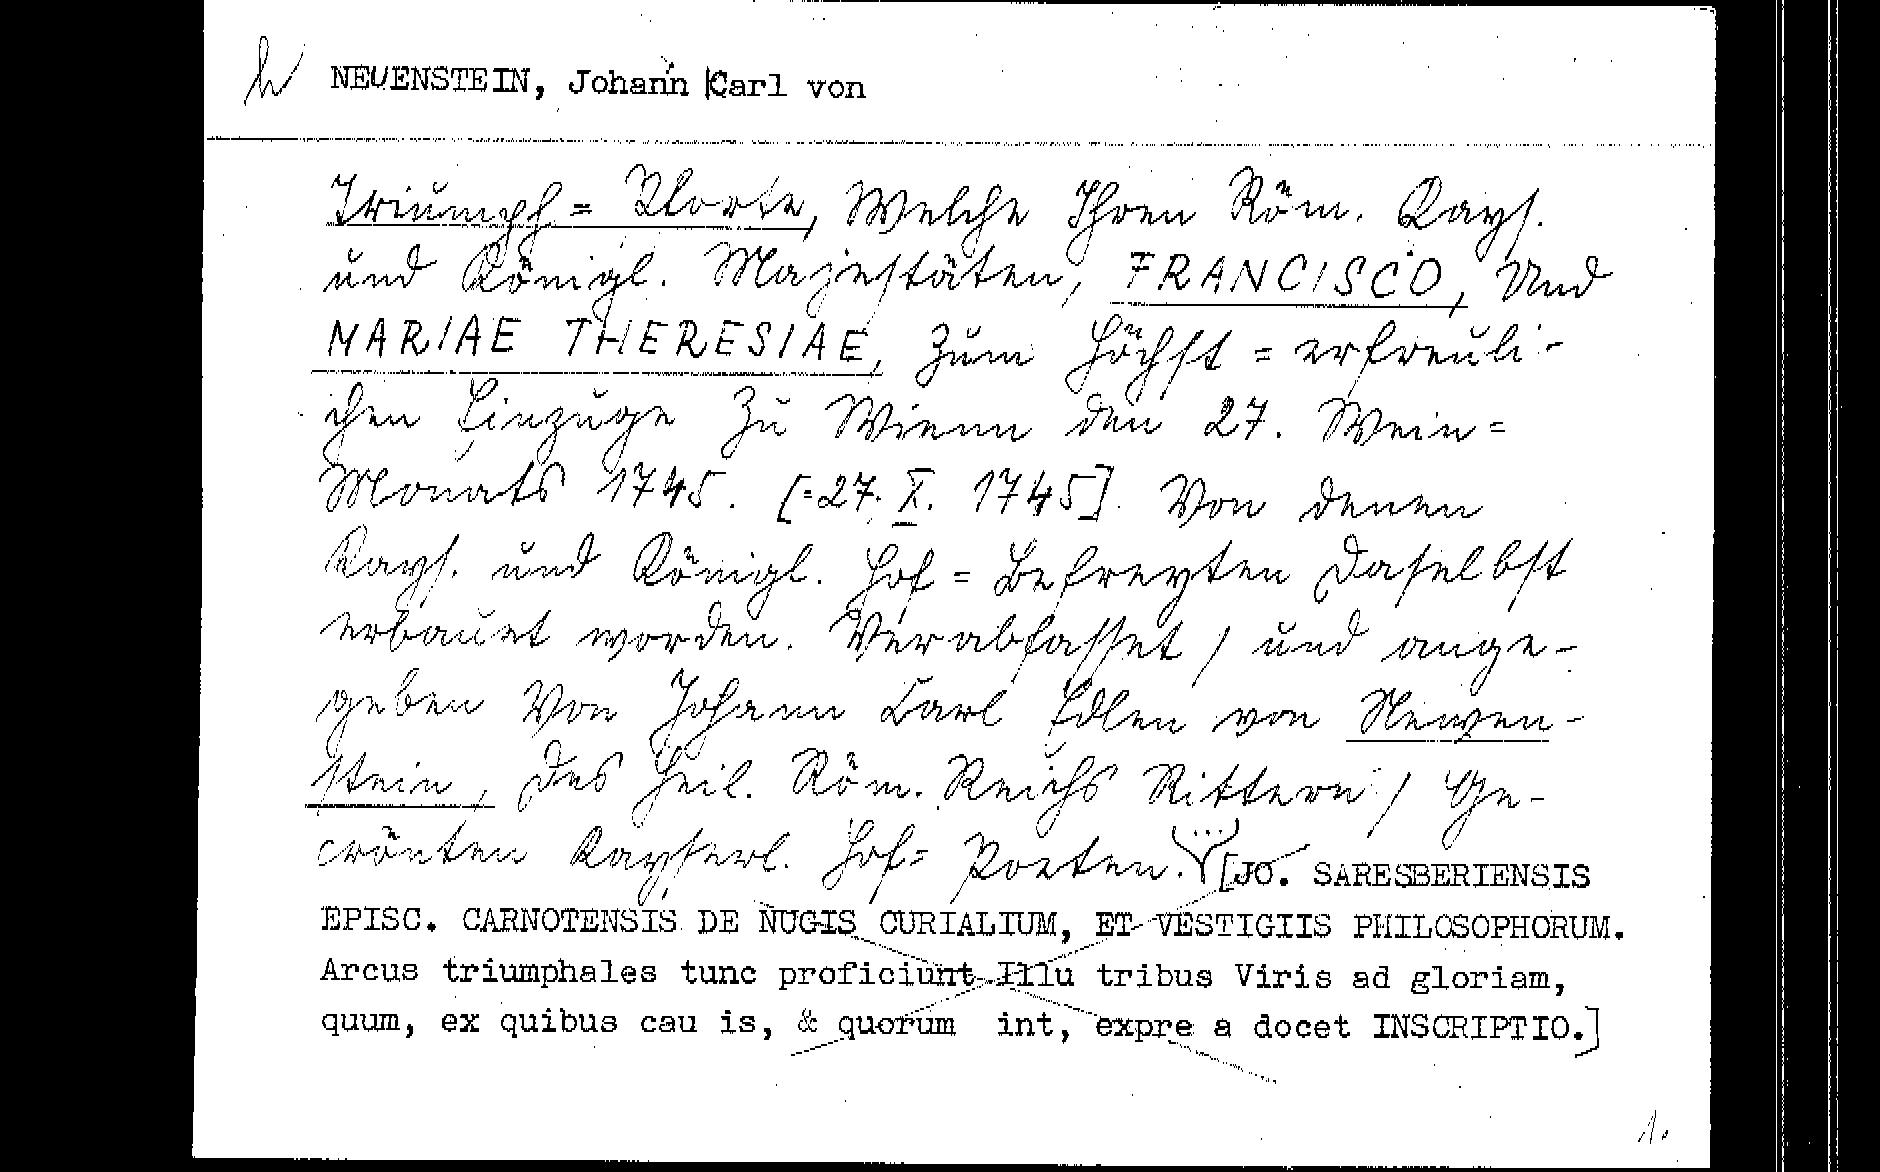 NEUENSTEIN, Johann Carl von
Triumph = Pforte, Welche Ihren Röm. Kays.
und Königl. Majestäten, FRANCISCO, Und
MARIAE THERESIAE, Zum Höchst = erfreuli-
chen Einzuge Zu Wienn den 27. Wein=
Monats 1745. [=27. X. 1745]. Von denen
Kays. und Königl. Hof = Befreyten Daselbst
erbauet worden. Verabfasset / und ange-
geben Von Johann Carl Edlen von Newen-
stein, Des Heil. Röm. Reichs Rittern / Ge-
crönten Kayserl. Hof= Poeten. (...) [JO. SARESBERIENSIS
EPISC. CARNOTENSIS DE NUGIS CURIALIUM, ET VESTIGIIS PHILOSOPHORUM.
Arcus triumphales tunc proficiunt Illu tribus Viris ad gloriam,
quum, ex quibus cau is, & quorum int, expre a docet INSCRIPTIO.]
1.